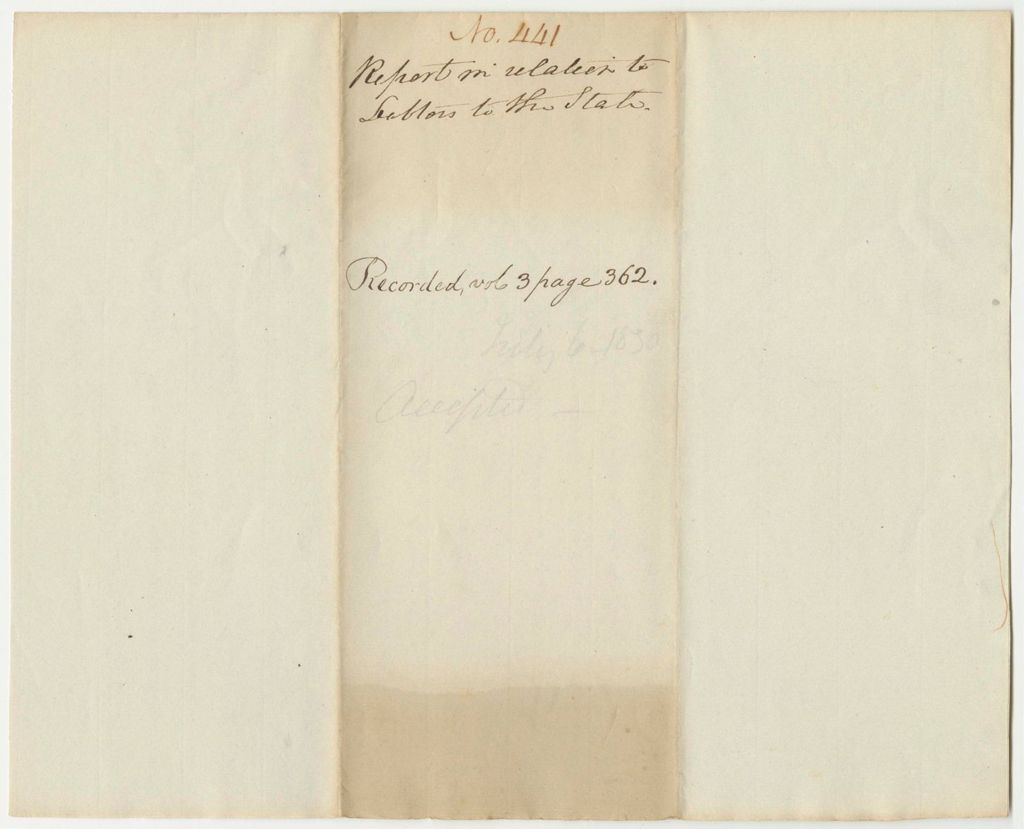 No. 441
Report in relation to
Debtors to the State.
Recorded, vol 3 page 362.
July 6. 1830
Accepted —